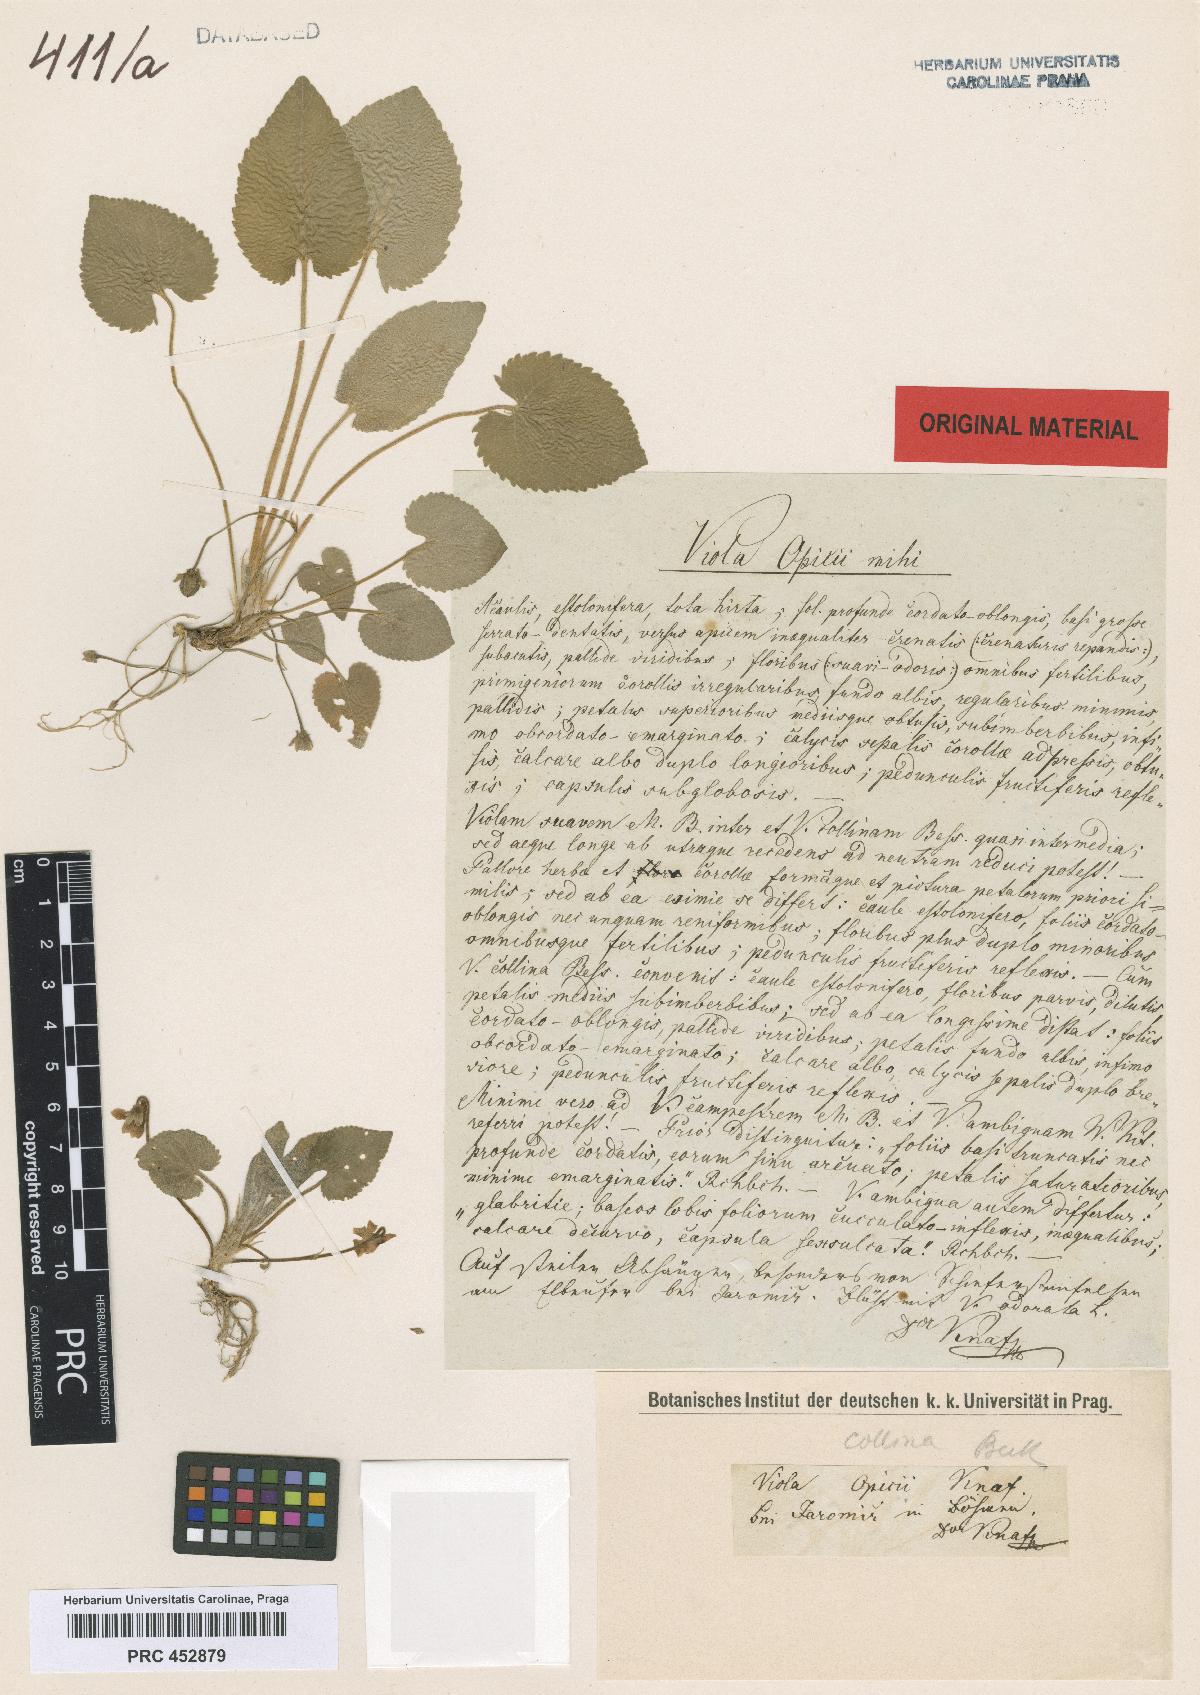 411/a
DATABASED
HERBARIUM UNIVERSITATIS
CAROLINAE PRAHA
ORIGINAL MATERIAL
Viola Opicii mihi
Acaulis, estolonifera, tota hirta; fol. profunde cordato-oblongis, basi grosse
serrato-dentatis, versus apicem inaequaliter crenatis (:crenaturis repandis:),
subacutis, pallide viridibus; floribus (suavi-odoris:) omnibus fertilibus,
primigeniorum corollis irregularibus, fundo albis, regularibus minimis,
pallidis; petalis superioribus mediisque obtusis, subimberbibus, infi-
mo obcordato-emarginato; calycis sepalis corollae adpressis, obtu-
sis, calcare albo duplo longioribus; pedunculis fructiferis refle-
xis; capsulis subglobosis. —
Violam suavem M. B. inter et V. collinam Bess. quasi intermedia;
sed aeque longe ab utraque recedens ad neutram reduci potest! —
Pallore herbae et corollae formaque et pictura petalorum priori si-
milis; sed ab ea eximie se differt: caule estolonifero, foliis cordato-
oblongis nec unquam reniformibus; floribus plus duplo minoribus
omnibusque fertilibus; pedunculis fructiferis reflexis. — Cum
V. collina Bess. convenit: caule estolonifero, floribus parvis, dilutis,
petalis mediis subimberbibus; sed ab ea longissime distat: foliis
cordato-oblongis, pallide viridibus; petalis fundo albis, infimo
obcordato-emarginato; calcare albo, calycis sepalis duplo bre-
viore; pedunculis fructiferis reflexis. —
Minime vero ad V. campestrem M. B. et V. ambiguam W. Kit.
referri potest! — Prior distinguitur: "foliis basi truncatis nec
profunde cordatis, eorum sinu arcuato; petalis saturatioribus,
minime emarginatis." Rchbch. — V. ambigua autem differtur:
"glabritie; baseos lobis foliorum cucculato-inflexis, inaequalibus;
calcare decurvo, capsula sexsulcata." Rchbch. —
Auf steilen Abhängen, besonders von Schiefersteinfelsen
am Elbeufer bei Jaroměř. Blüht mit V. odorata L.
Dor Knaf
Botanisches Institut der deutschen k. k. Universität in Prag.
collina
Viola Opicii Knaf.
bei Jaroměř in Böhmen.
Dor Knaf
cm
0 1 2 3 4 5 6 7 8 9 10
copyright reserved
PRC
HERBARIUM UNIVERSITATIS
CAROLINAE PRAGENSIS
Herbarium Universitatis Carolinae, Praga
PRC 452879